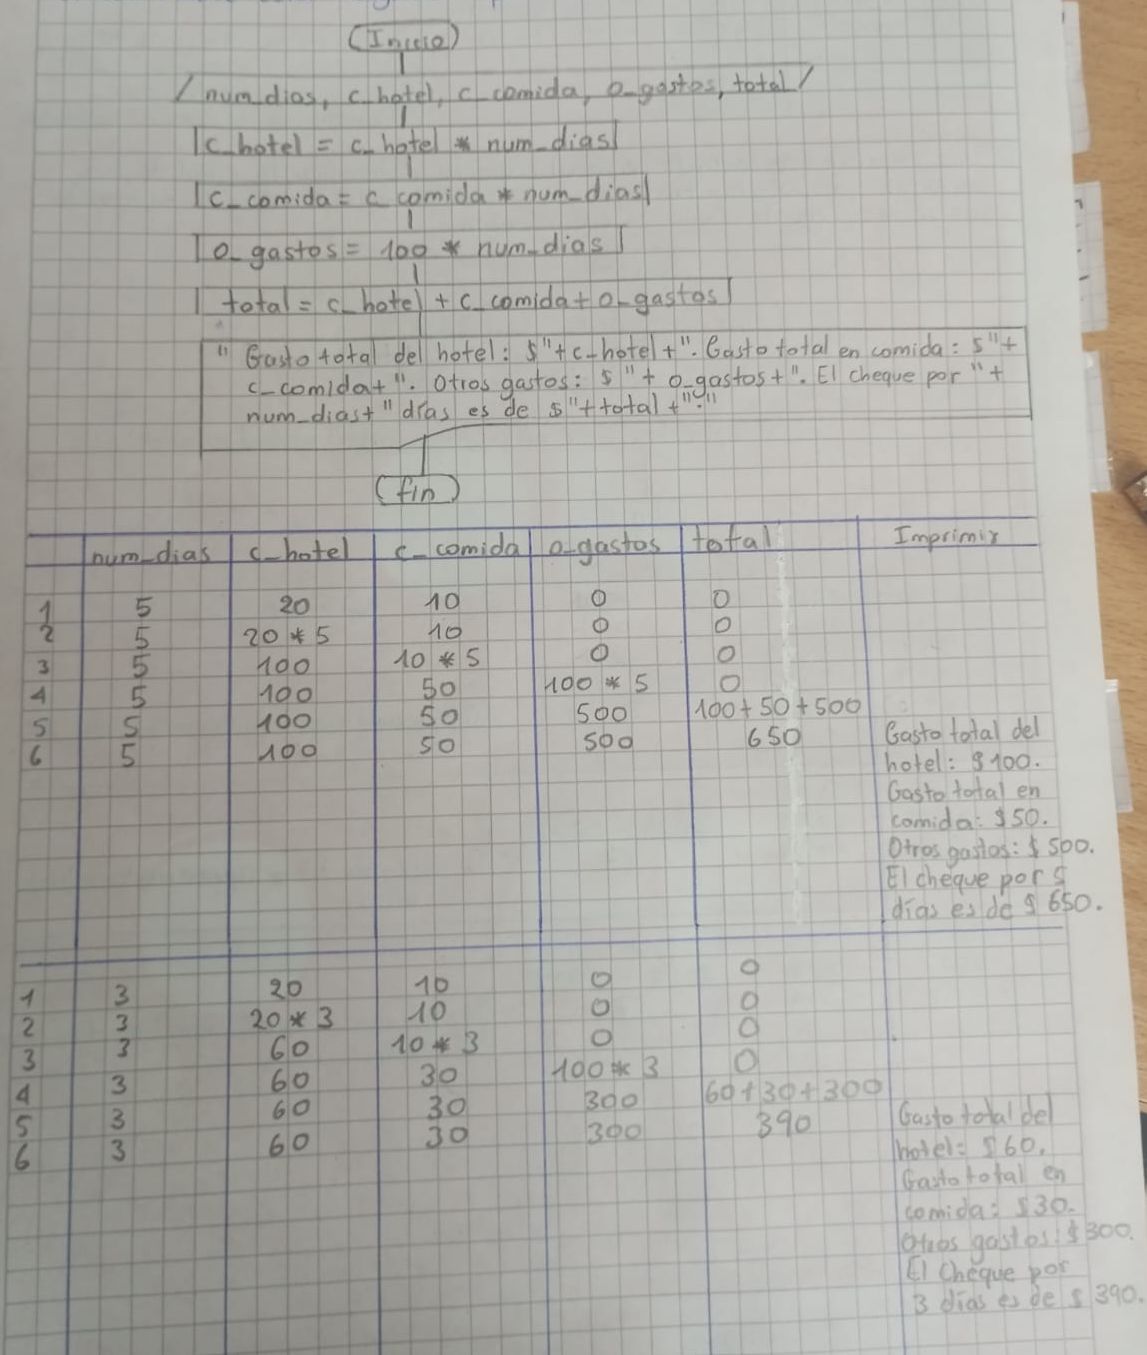 (Inicio)
/num_dias, c_hotel, c_comida, o_gastos, total/
|c_hotel = c_hotel * num_dias|
|c_comida = c_comida * num_dias|
|o_gastos = 100 * num_dias|
|total = c_hotel + c_comida + o_gastos|
"Gasto total del hotel: $"+c_hotel+". Gasto total en comida: $"+
c_comida+". Otros gastos: $"+ o_gastos+". El cheque por "+
num_dias+" días es de $"+total+"."
(fin)
num_dias c_hotel c_comida o_gastos total Imprimir
1 5 20 10 0 0
2 5 20 * 5 10 0 0
3 5 100 10 * 5 0 0
4 5 100 50 100 * 5 0
5 5 100 50 500 100+50+500
6 5 100 50 500 650 Gasto total del
hotel: $100.
Gasto total en
comida: $50.
Otros gastos: $500.
El cheque por 5
días es de $650.
1 3 20 10 0 0
2 3 20 * 3 10 0 0
3 3 60 10 * 3 0 0
4 3 60 30 100 * 3 0
5 3 60 30 300 60+30+300
6 3 60 30 300 390 Gasto total del
hotel: $60.
Gasto total en
comida: $30.
Otros gastos: $300.
El cheque por
3 días es de $390.